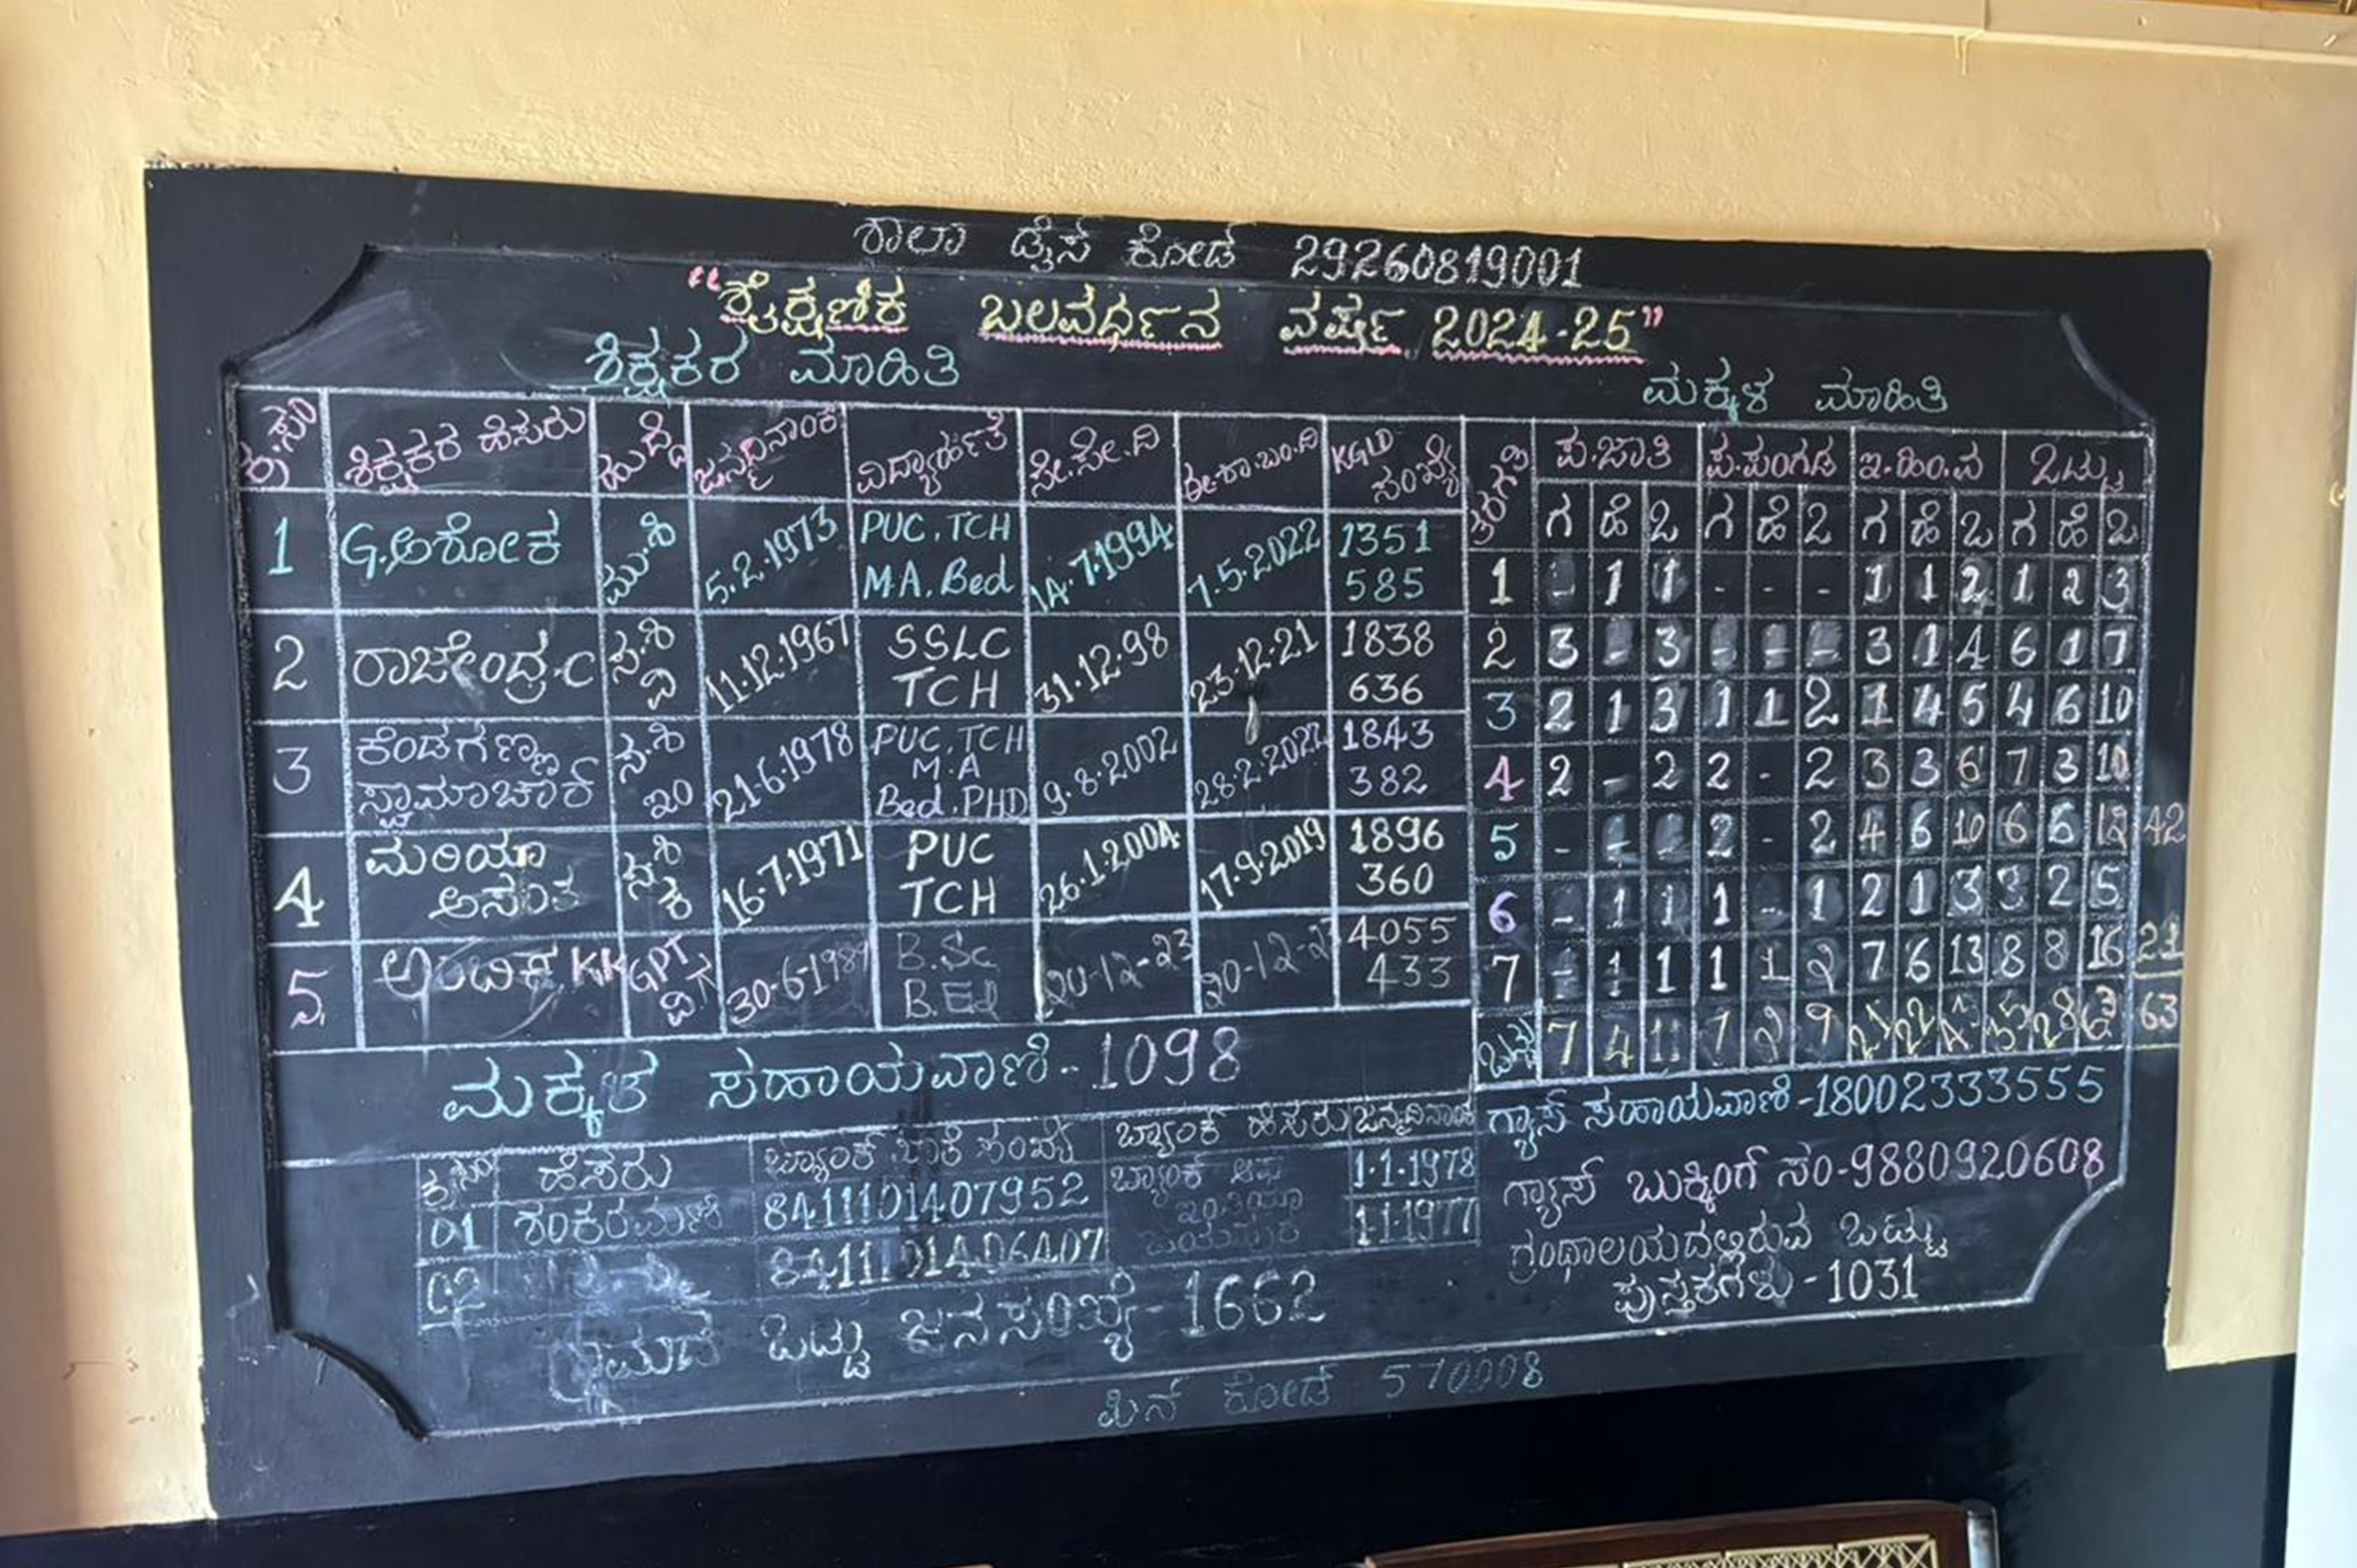 ಶಾಲಾ ಡೈಸ್ ಕೋಡ್ 29260819001
"ಶೈಕ್ಷಣಿಕ ಬಲವರ್ಧನ ವರ್ಷ 2024-25"
ಶಿಕ್ಷಕರ ಮಾಹಿತಿ
ಕ್ರ.ಸಂ ಶಿಕ್ಷಕರ ಹೆಸರು ಹುದ್ದೆ ಜನ್ಮದಿನಾಂಕ ವಿದ್ಯಾರ್ಹತೆ ಸೇ.ಸೇ.ದಿ ಈ.ಶಾ.ಬಂ.ದಿ KGID ಸಂಖ್ಯೆ
1 G.ಅಶೋಕ ಮು.ಶಿ 5.2.1973 PUC.TCH M.A.Bed 14.7.1994 7.5.2022 1351 585
2 ರಾಜೇಂದ್ರ.C ಸ.ಶಿ ವಿ 11.12.1967 SSLC TCH 31.12.98 23.12.21 1838 636
3 ಕೆಂಡಗಣ್ಣ ಸ್ವಾಮಾಚಾರ್ ಸ.ಶಿ ಇಂ 21.6.1978 PUC.TCH M.A Bed.PHD 9.8.2002 28.2.2022 1843 382
4 ಮರಿಯಾ ಅಸೆಂತ ಸ.ಶಿ 16.7.1971 PUC TCH 26.1.2004 17.9.2019 1896 360
5. KK GPT 30-6-198 B.Sc B.Ed 20-12-23 20-12-2 4055 433
ಮಕ್ಕಳ ಮಾಹಿತಿ
ತರಗತಿ ಪ.ಜಾತಿ ಪ.ಪಂಗಡ ಇ.ಹಿಂ.ವ ಒಟ್ಟು
ಗ ಹೆ ಒ ಗ ಹೆ ಒ ಗ ಹೆ ಒ ಗ ಹೆ ಒ
1 - 1 1 - - - 1 1 2 1 2 3
2 3 - 3 - - - 3 1 4 6 1 7
3 2 1 3 1 1 2 1 4 5 4 6 10
4 2 - 2 2 - 2 3 3 6 7 3 10
5 - - - 2 - 2 4 6 10 6 6 12 42
6 - 1 1 1 - 1 2 1 3 3 2 5
7 - 1 1 1 1 2 7 6 13 8 8 16 21
ಒಟ್ಟು 7 4 11 7 2 9 21 22 43 35 28 63 63
ಮಕ್ಕಳ ಸಹಾಯವಾಣಿ-1098
ಕ್ರ.ಸಂ ಹೆಸರು ಬ್ಯಾಂಕ್ ಖಾತೆ ಸಂಖ್ಯೆ ಬ್ಯಾಂಕ್ ಹೆಸರು ಜನ್ಮದಿನಾಂಕ
01 ಶಂಕರಮಣಿ 8411101407952 ಬ್ಯಾಂಕ್ ಆಫ್ 1-1-1978
02 8411101406407 1-1-1977
ಗ್ರಾಮದ ಒಟ್ಟು ಜನಸಂಖ್ಯೆ-1662
ಗ್ಯಾಸ್ ಸಹಾಯವಾಣಿ-18002333555
ಗ್ಯಾಸ್ ಬುಕ್ಕಿಂಗ್ ಸಂ-9880920608
ಗ್ರಂಥಾಲಯದಲ್ಲಿರುವ ಒಟ್ಟು
ಪುಸ್ತಕಗಳು-1031
ಪಿನ್ ಕೋಡ್ 570008